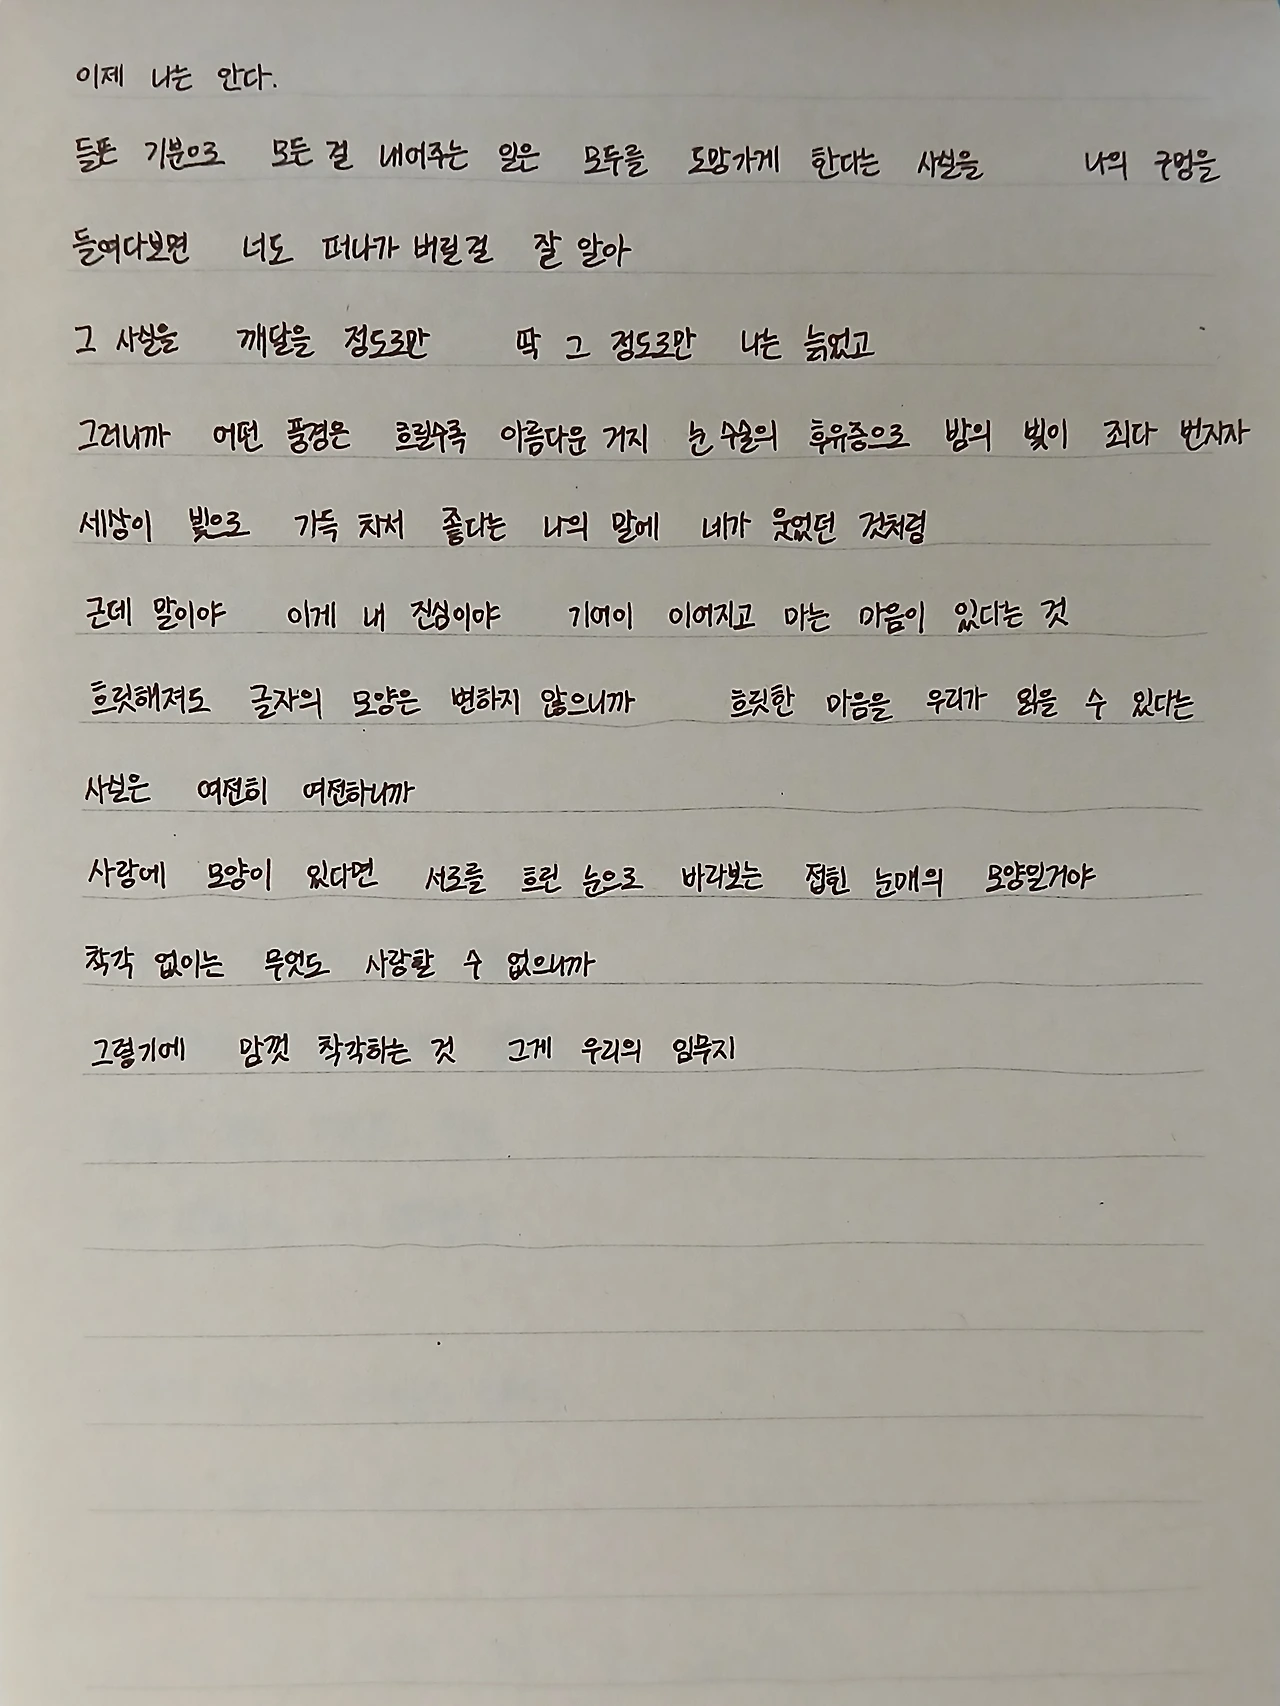 이제 나는 안다.
들뜬 기분으로 모든 걸 내어주는 일은 모두를 도망가게 한다는 사실을 나의 구멍을
들여다보면 너도 떠나가 버릴걸 잘 알아
그 사실을 깨달을 정도로만 딱 그 정도로만 나는 늙었고
그러니까 어떤 풍경은 흐릴수록 아름다운 거지 눈 수술의 후유증으로 밤의 빛이 죄다 번지자
세상이 빛으로 가득 차서 좋다는 나의 말에 네가 웃었던 것처럼
근데 말이야 이게 내 진심이야 기어이 이어지고 마는 마음이 있다는 것
흐릿해져도 글자의 모양은 변하지 않으니까 흐릿한 마음을 우리가 읽을 수 있다는
사실은 여전히 여전하니까
사랑에 모양이 있다면 서로를 흐린 눈으로 바라보는 접힌 눈매의 모양일거야
착각 없이는 무엇도 사랑할 수 없으니까
그렇기에 맘껏 착각하는 것 그게 우리의 임무지